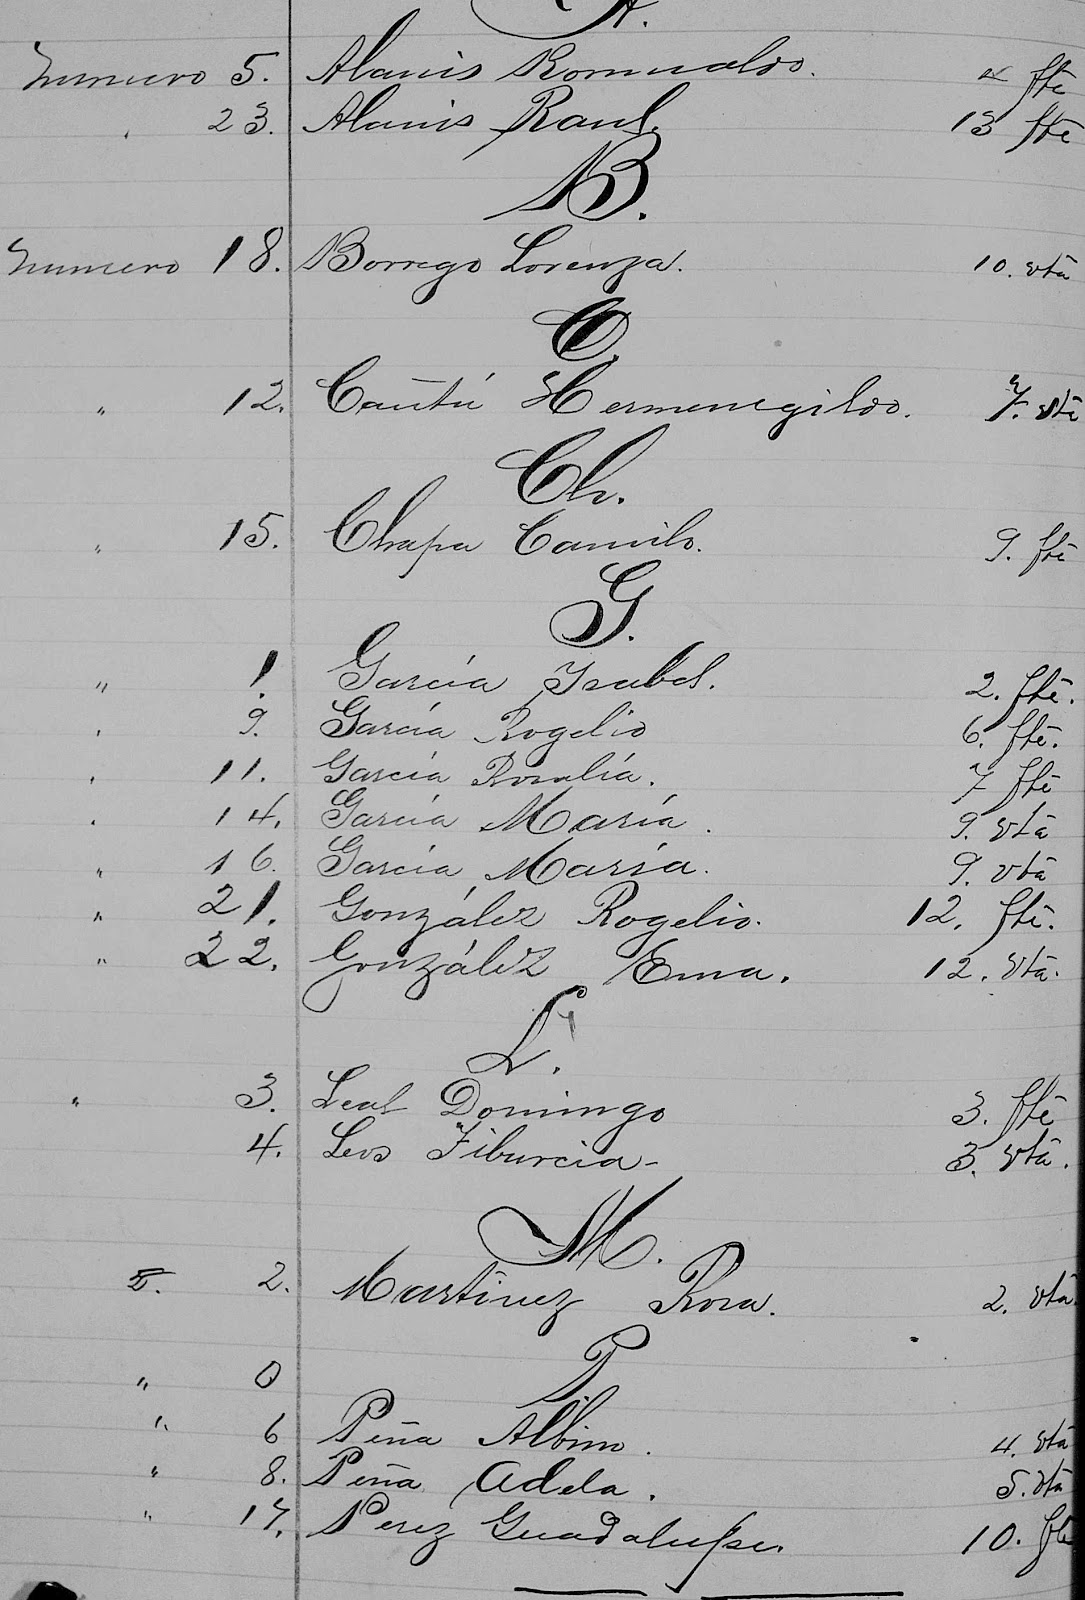 A.
Numero 5. Alanis Romualdo. 4 fte
23. Alanis Raul. 13 fte
B.
Numero 18. Borrego Lorenza. 10. vta
C.
" 12. Cantú Hermenegildo. 7. vta
Ch.
" 15. Chapa Camilo. 9. fte
G.
" 1. García Ysabel. 2. fte.
" 9. García Rogelio 6. fte.
" 11. García Rosalía. 7 fte
" 14. García María. 9. vta
" 16. García María. 9. vta
" 21. González Rogelio. 12. fte.
" 22. González Ema. 12. vta.
L.
" 3. Leal Domingo 3. fte
4. Leos Tiburcia- 3. vta.
M.
2. Martínez Rosa. 2. vta
P
" 0
" 6 Peña Albino. 4. vta
" 8. Peña Adela. 5. vta
" 17. Perez Guadalupe. 10. fte